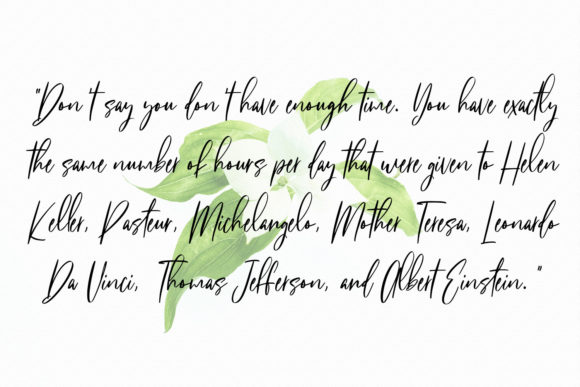 "Don't say you don't have enough time. You have exactly
the same number of hours per day that were given to Helen
Keller, Pasteur, Michelangelo, Mother Teresa, Leonardo
Da Vinci, Thomas Jefferson, and Albert Einstein."